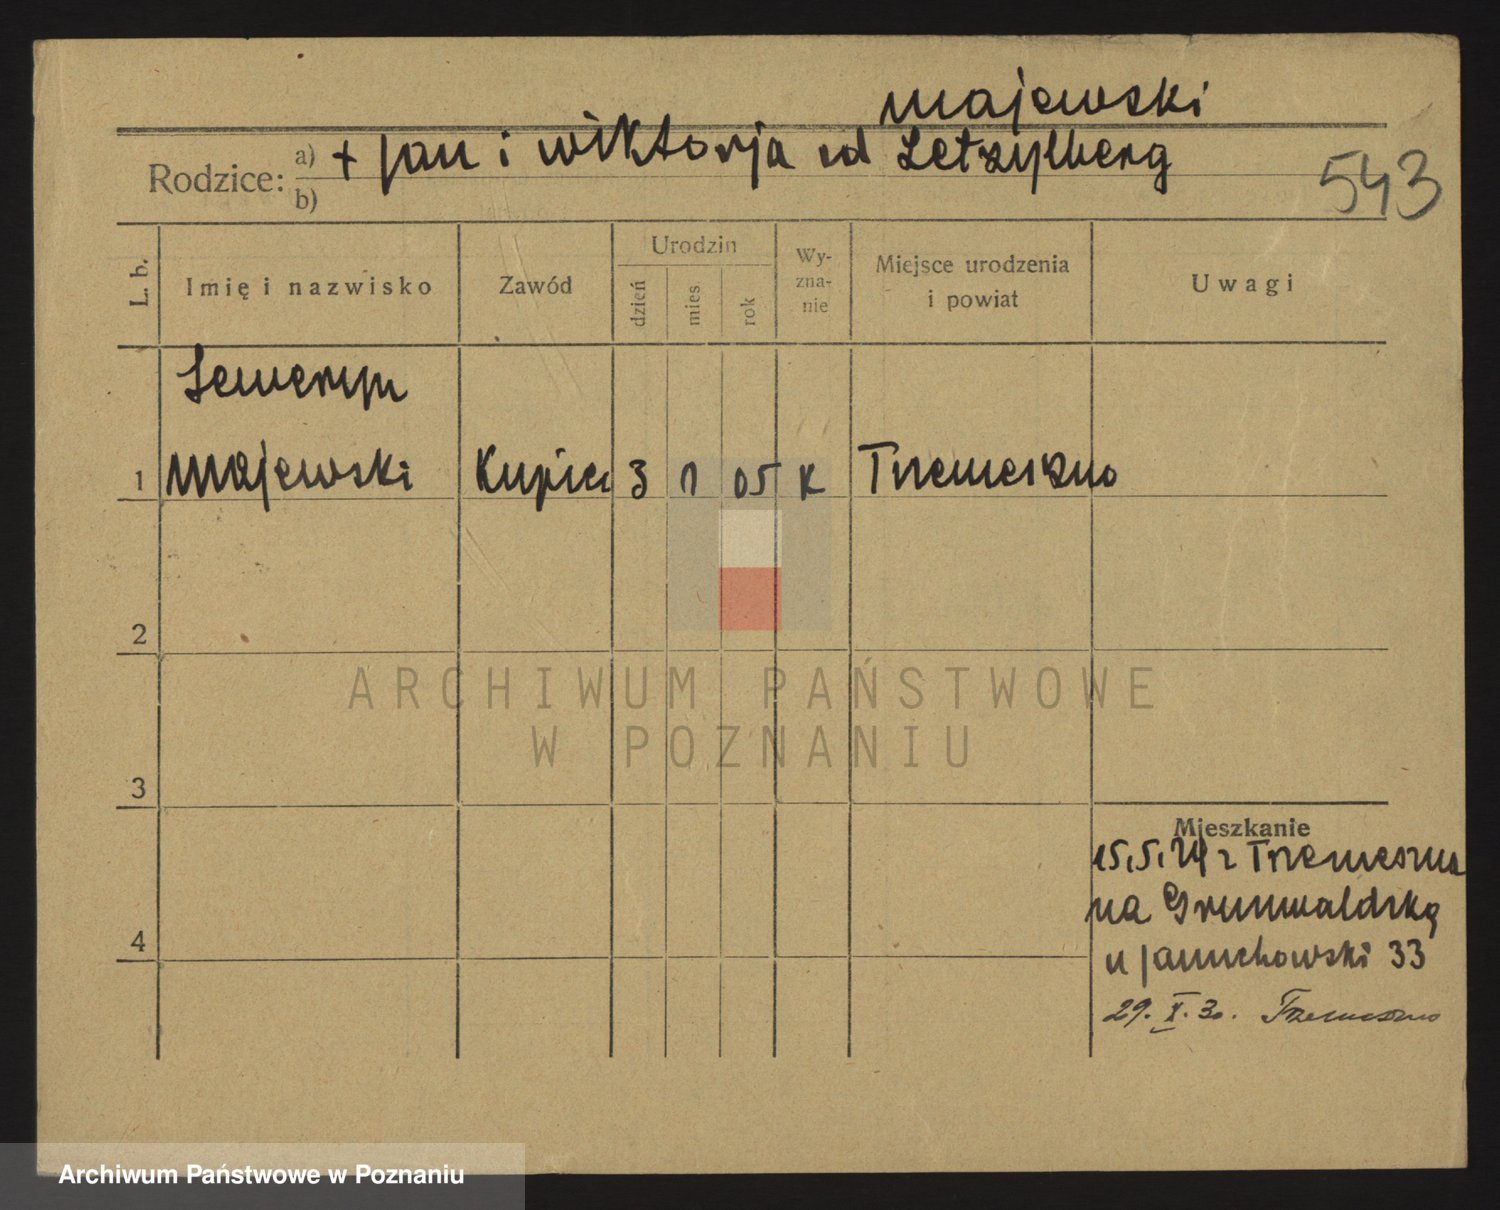 majewski
Rodzice: a) + Jan i wiktorja od
b)
543
L. b.
Imię i nazwisko
Zawód
Urodzin
dzień
mies.
rok
Wy-
zna-
nie
Miejsce urodzenia
i powiat
Uwagi
Seweryn
1 majewski Kupiec 3 1 05 K Trzemeszno
2
ARCHIWUM PAŃSTWOWE
W POZNANIU
3
Mieszkanie
15.5.24 z Trzemeszna
na Grunwaldską
u Januchowski 33
4
29. X. 30. Trzemeszno
Archiwum Państwowe w Poznaniu